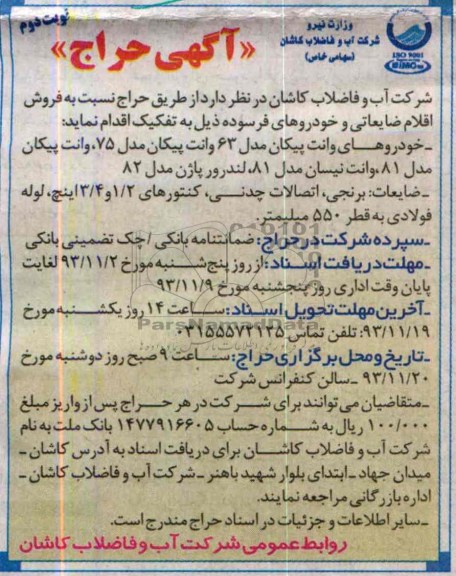 نوبت دوم
وزارت نیرو
شرکت آب و فاضلاب کاشان
(سهامی خاص)
ISO 9001
«آگهی حراج»
شرکت آب و فاضلاب کاشان در نظر دارد از طریق حراج نسبت به فروش
اقلام ضایعاتی و خودروهای فرسوده ذیل به تفکیک اقدام نماید:
ـ خودروهـای وانت پیکان مدل ۶۳ وانت پیکان مدل ۷۵، وانت پیکان
مدل ۸۱، وانت نیسان مدل ۸۱، لندرور پاژن مدل ۸۲
ـ ضایعات: برنجی، اتصالات چدنـی، کنتورهای ۱/۲ و ۳/۴ اینچ، لوله
فولادی به قطر ۵۵۰ میلیمتر.
ـ سپرده شرکت در حراج: ضمانتنامه بانکی / چک تضمینی بانکی
ـ مهلت دریافت اسناد: از روز پنج شنبه مورخ ۹۳/۱۱/۲ لغایت
پایان وقت اداری روز پنجشنبه مورخ ۹۳/۱۱/۹
ـ آخرین مهلت تحویل اسناد: ساعت ۱۴ روز یکشنبه مورخ
۹۳/۱۱/۱۹: تلفن تماس
ParsNamadData
ـ تاریخ و محل برگزاری حراج: ساعت ۹ صبح روز دوشنبه مورخ
۹۳/۱۱/۲۰ ـ سالن کنفرانس شرکت
ـ متقاضیان می‌توانند برای شرکت در هر حراج پس از واریز مبلغ
۱۰۰/۰۰۰ ریال به شماره حساب ۱۴۷۷۹۱۶۶۰۵ بانک ملت به نام
شرکت آب و فاضلاب کاشان برای دریافت اسناد به آدرس کاشان ـ
میدان جهاد ـ ابتدای بلوار شهید باهنر ـ شرکت آب و فاضلاب کاشان ـ
اداره بازرگانی مراجعه نمایند.
ـ سایر اطلاعات و جزئیات در اسناد حراج مندرج است.
روابط عمومی شرکت آب و فاضلاب کاشان